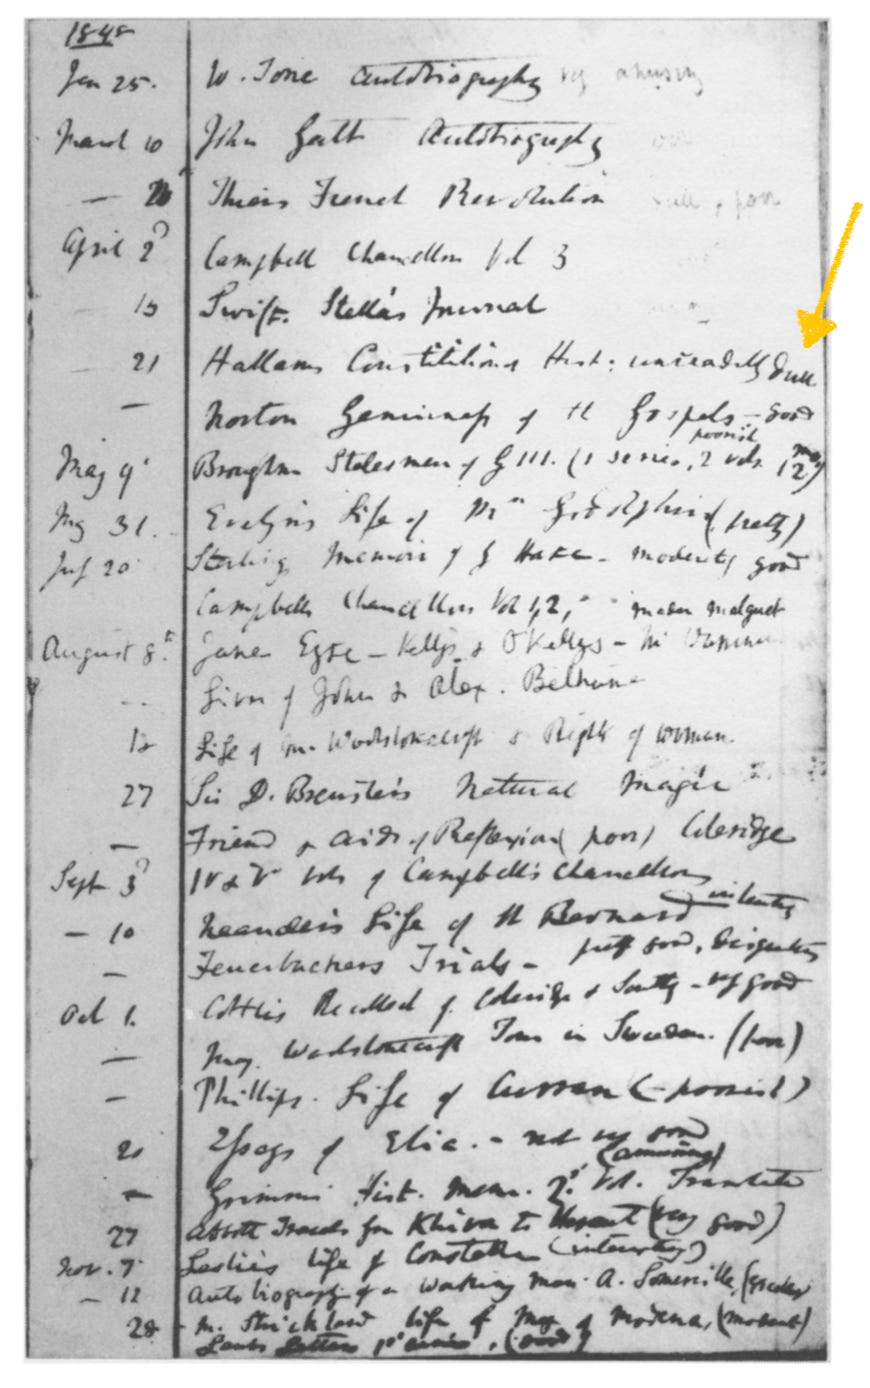 1848
Jan 25. W. Tone Autobiography very amusing
March 10 John Galt Autobiography
— 26 Thiers French Revolution dull & poor
April 2d Campbell Chancellors Vol 3
15 Swift. Stella's Journal
21 Hallams Constitutional Hist: unreadably dull
— Norton Genuineness of the Gospels — good
poorish
May 9 Brougham Statesmen of G III. (1 series, 2 vols.
May 31. Evelyns Life of Mrs Godolphin (pretty)
July 20 Sterling Memoir of J Hare — moderately good
Campbells Chancellors Vol 1, 2,
August 8th Jane Eyre — Kellys & O'Kellys —
-- Lives of John & Alex. Bethune
12 Life of M. Woolstonecraft & Rights of woman.
27 Sir D. Brewster's Natural Magic
— Friend & Aids of Reflexion (poor) Coleridge
Sept 3d IV & V Vols of Campbell's Chancellors
interesting
— 10 Neander's Life of St Bernard
— Feuerbachers Trials — good, disgusting
Oct 1. Cottles Recollect of Coleridge & Southey — very good
— Mary Woolstonecraft Tour in Sweden. (poor)
— Phillips. Life of Curran (— poorish)
20 Essays of Elia. — not very good
(amusing)
— Grimm's Hist. Mem. 2d Vol. Translated
27 Abbott Travels from Khiva to Herat (very good)
Nov. 7 Leslie's life of Constable (interesting)
— 12 Autobiography of a Working man. A. Somerville,
28 — M. Strickland life of Mary of Modena,
Lambs Letters (good)